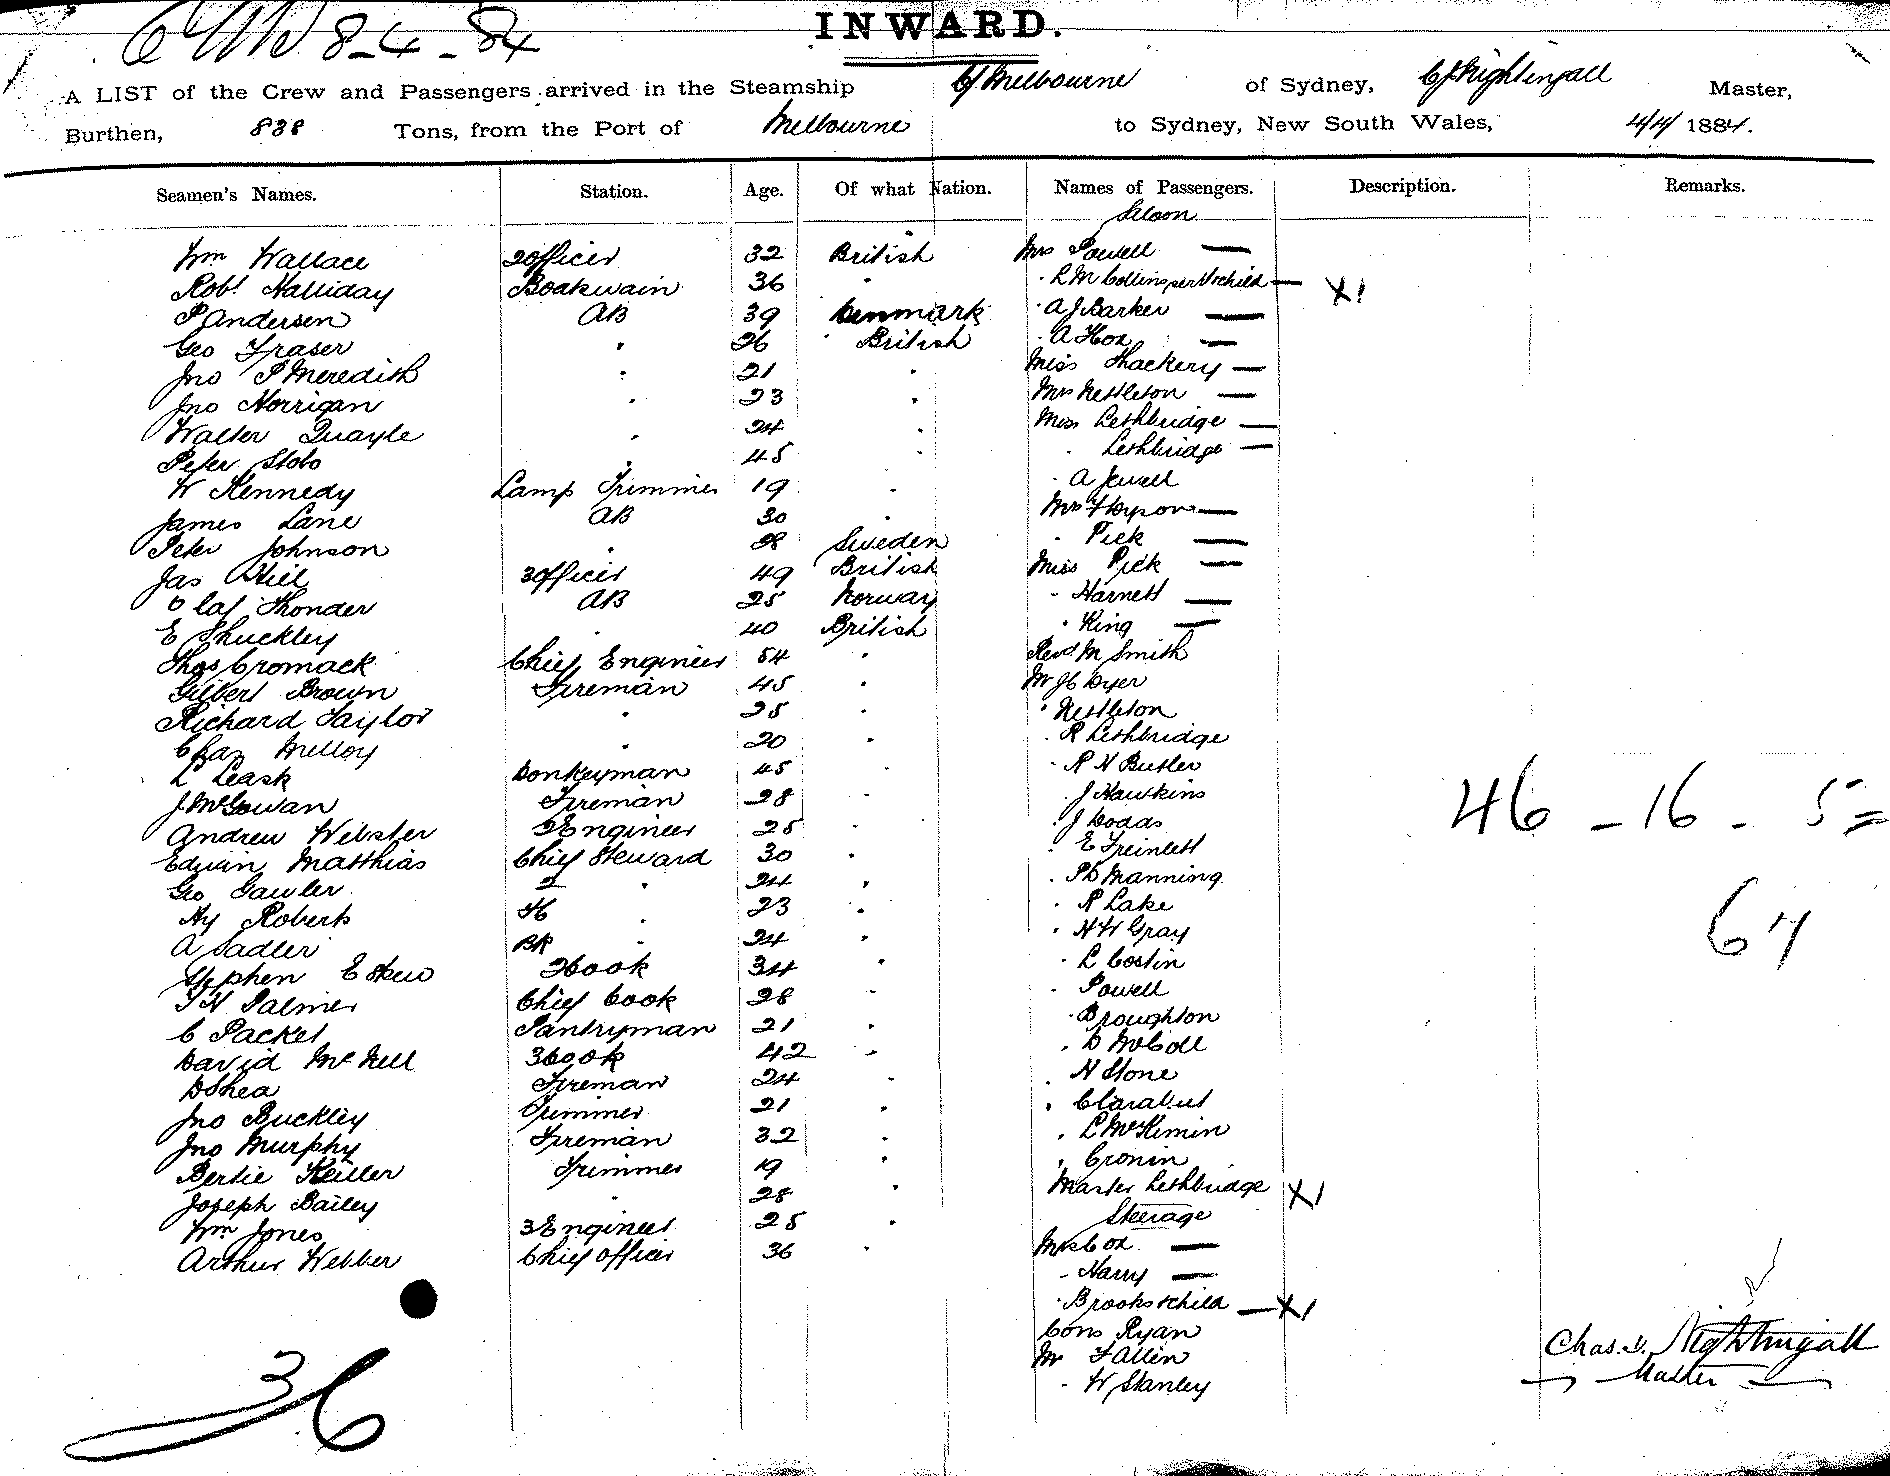 8-4-84
INWARD.
A LIST of the Crew and Passengers arrived in the Steamship Cy Melbourne of Sydney, CJ Nightingall Master,
Burthen, 838 Tons, from the Port of Melbourne to Sydney, New South Wales, 4/4/1884.
Seamen's Names. Station. Age. Of what Nation. Names of Passengers. Description. Remarks.
Saloon
Wm Wallace 2 Officer 32 British Mrs Powell —
Robt Halliday Boatswain 36 " " L M Collins per & child — X1
P Andersen AB 39 Denmark " A J Barker —
Geo Fraser " 26 British " A Fox —
Jno P Meredith " 21 " Miss Thackery —
Jno Horrigan " 23 " Mrs Nettleton —
Walter Quayle " 24 " Miss Lethbridge —
Peter Stobo " 45 " " Lethbridge —
W Kennedy Lamp Trimmer 19 " " A Jewell
James Lane AB 30 " Mrs Hyson —
Peter Johnson " Sweden " Pick —
Jas Hill 3 Officer 49 British Miss Pick —
Olaf Thonder AB 25 Norway " Harnett —
E Shuckley " 40 British " King —
Thos Cromack Chief Engineer 54 " Revd M Smith
Gilbert Brown Fireman 45 " Mr J C Dyer
Richard Taylor " 25 " " Nettleton
Chas Melloy " 20 " " R Lethbridge
L Leask Donkeyman 45 " " R N Butler
J McGowan Fireman 28 " " J Hawkins
Andrew Webster 2 Engineer 25 " " J Dodds
Edwin Matthias Chief Steward 30 " " E Freinlett
Geo Gawler 2 " 24 " " P D Manning
Hy Roberts " 23 " " R Lake
A Sadler BR " 24 " " H W Gray
Stephen Eskew 2 Cook 34 " " L Costin
T H Palmer Chief Cook 28 " " Powell
C Packet Pantryman 21 " " Broughton
David McNell 3 Cook 42 " " D McColl
D Shea Fireman 24 " " N Stone
Jno Buckley Trimmer 21 " " Clarabut
Jno Murphy Fireman 32 " " L McKimin
Bertie Keiller Trimmer 19 " " Cronin
Joseph Bailey " 28 " Master Lethbridge X1
Steerage
Wm Jones 3 Engineer 25 "
Arthur Webber Chief Officer 36 " Mrs Cox —
" Harry —
" Brooks & child — X1
Cons Ryan
Mr F Allen
" W Stanley
46 - 16 - 5 =
67
36
Chas. J. Nightingall
Master